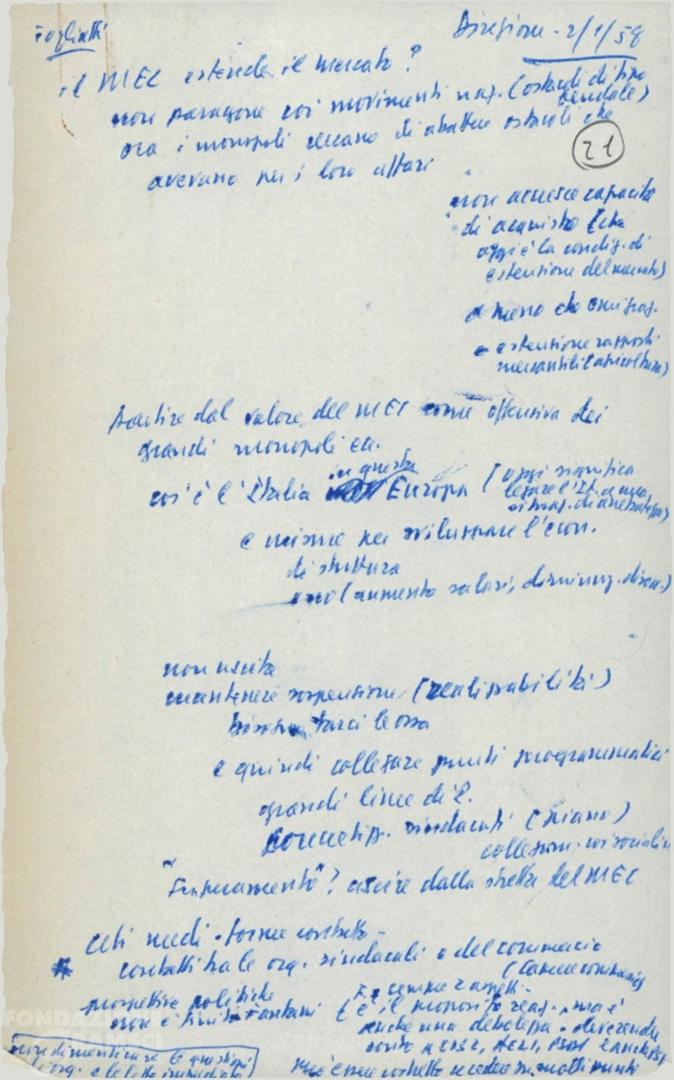 Togliatti
Direzione - 2/1/58
il MEC estende il mercato?
non paragone coi movimenti naz. (ostacoli di tipo
feudale)
ora i monopoli cercano di abattere ostacoli che
21
avevano per i loro affari
non accresce capacità
di acquisto (che
oggi è la condiz. di
estensione del mercato)
a meno che emigraz.
e estensione rapporti
mercantili (agricoltura)
Partire dal valore del MEC come offensiva dei
grandi monopoli ec.
cos'è l'Italia in questa Europa (oggi significa
legare l'It. a una
di arretratezza)
e misure per sviluppare l'econ.
di struttura
e no (aumento salari, diminuz. disoc.)
non uscita
mantenere sospensione (realizzabilità)
farci le ossa
e quindi collegare punti programmatici
grandi linee di l.
sindacati (piano)
collegam. coi socialisti
"Inserimento"? uscire dalla stretta del MEC
Ceti medi - forme contratto -
contatti tra le org. sindacali e del commercio
(Camere commercio
prospettive politiche
non è finito Fantani
è il monopolio reaz. ma è
anche una debolezza - dovendo
conto a CISL, ACLI, PSDI
può essere costretto a cedere su molti punti
FONDAZIONE
GRAMSCI
non dimenticare le questioni
di org. e le lotte immediate